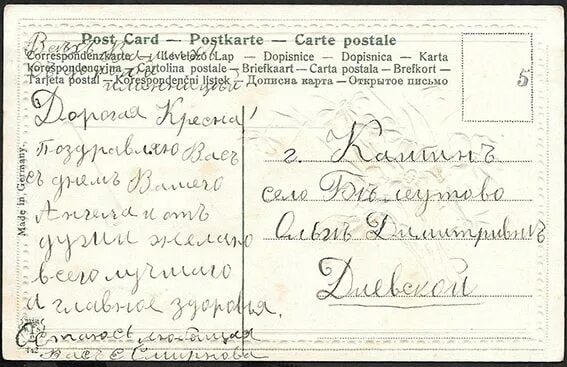 Post Card — Postkarte — Carte postale
Correspondenzkarte — Levelező Lap — Dopisnice — Dopisnica — Karta
korespondencyjna — Cartolina postale — Briefkaart — Carta postala — Brefkort —
Tarjeta postal — Korespondenčni listek — Дописна карта — Открытое письмо
5
Made in Germany.
Дорогая Кресна!
Поздравляю Васъ
съ днемъ Вашего
Ангела и отъ
души желаю
всего лучшаго
и главное здоровья.
Остаюсь любящая
Васъ Е Смирнова
г. Кашинъ
село Бѣлеутово
Ольгѣ Димитривнѣ
Диевской